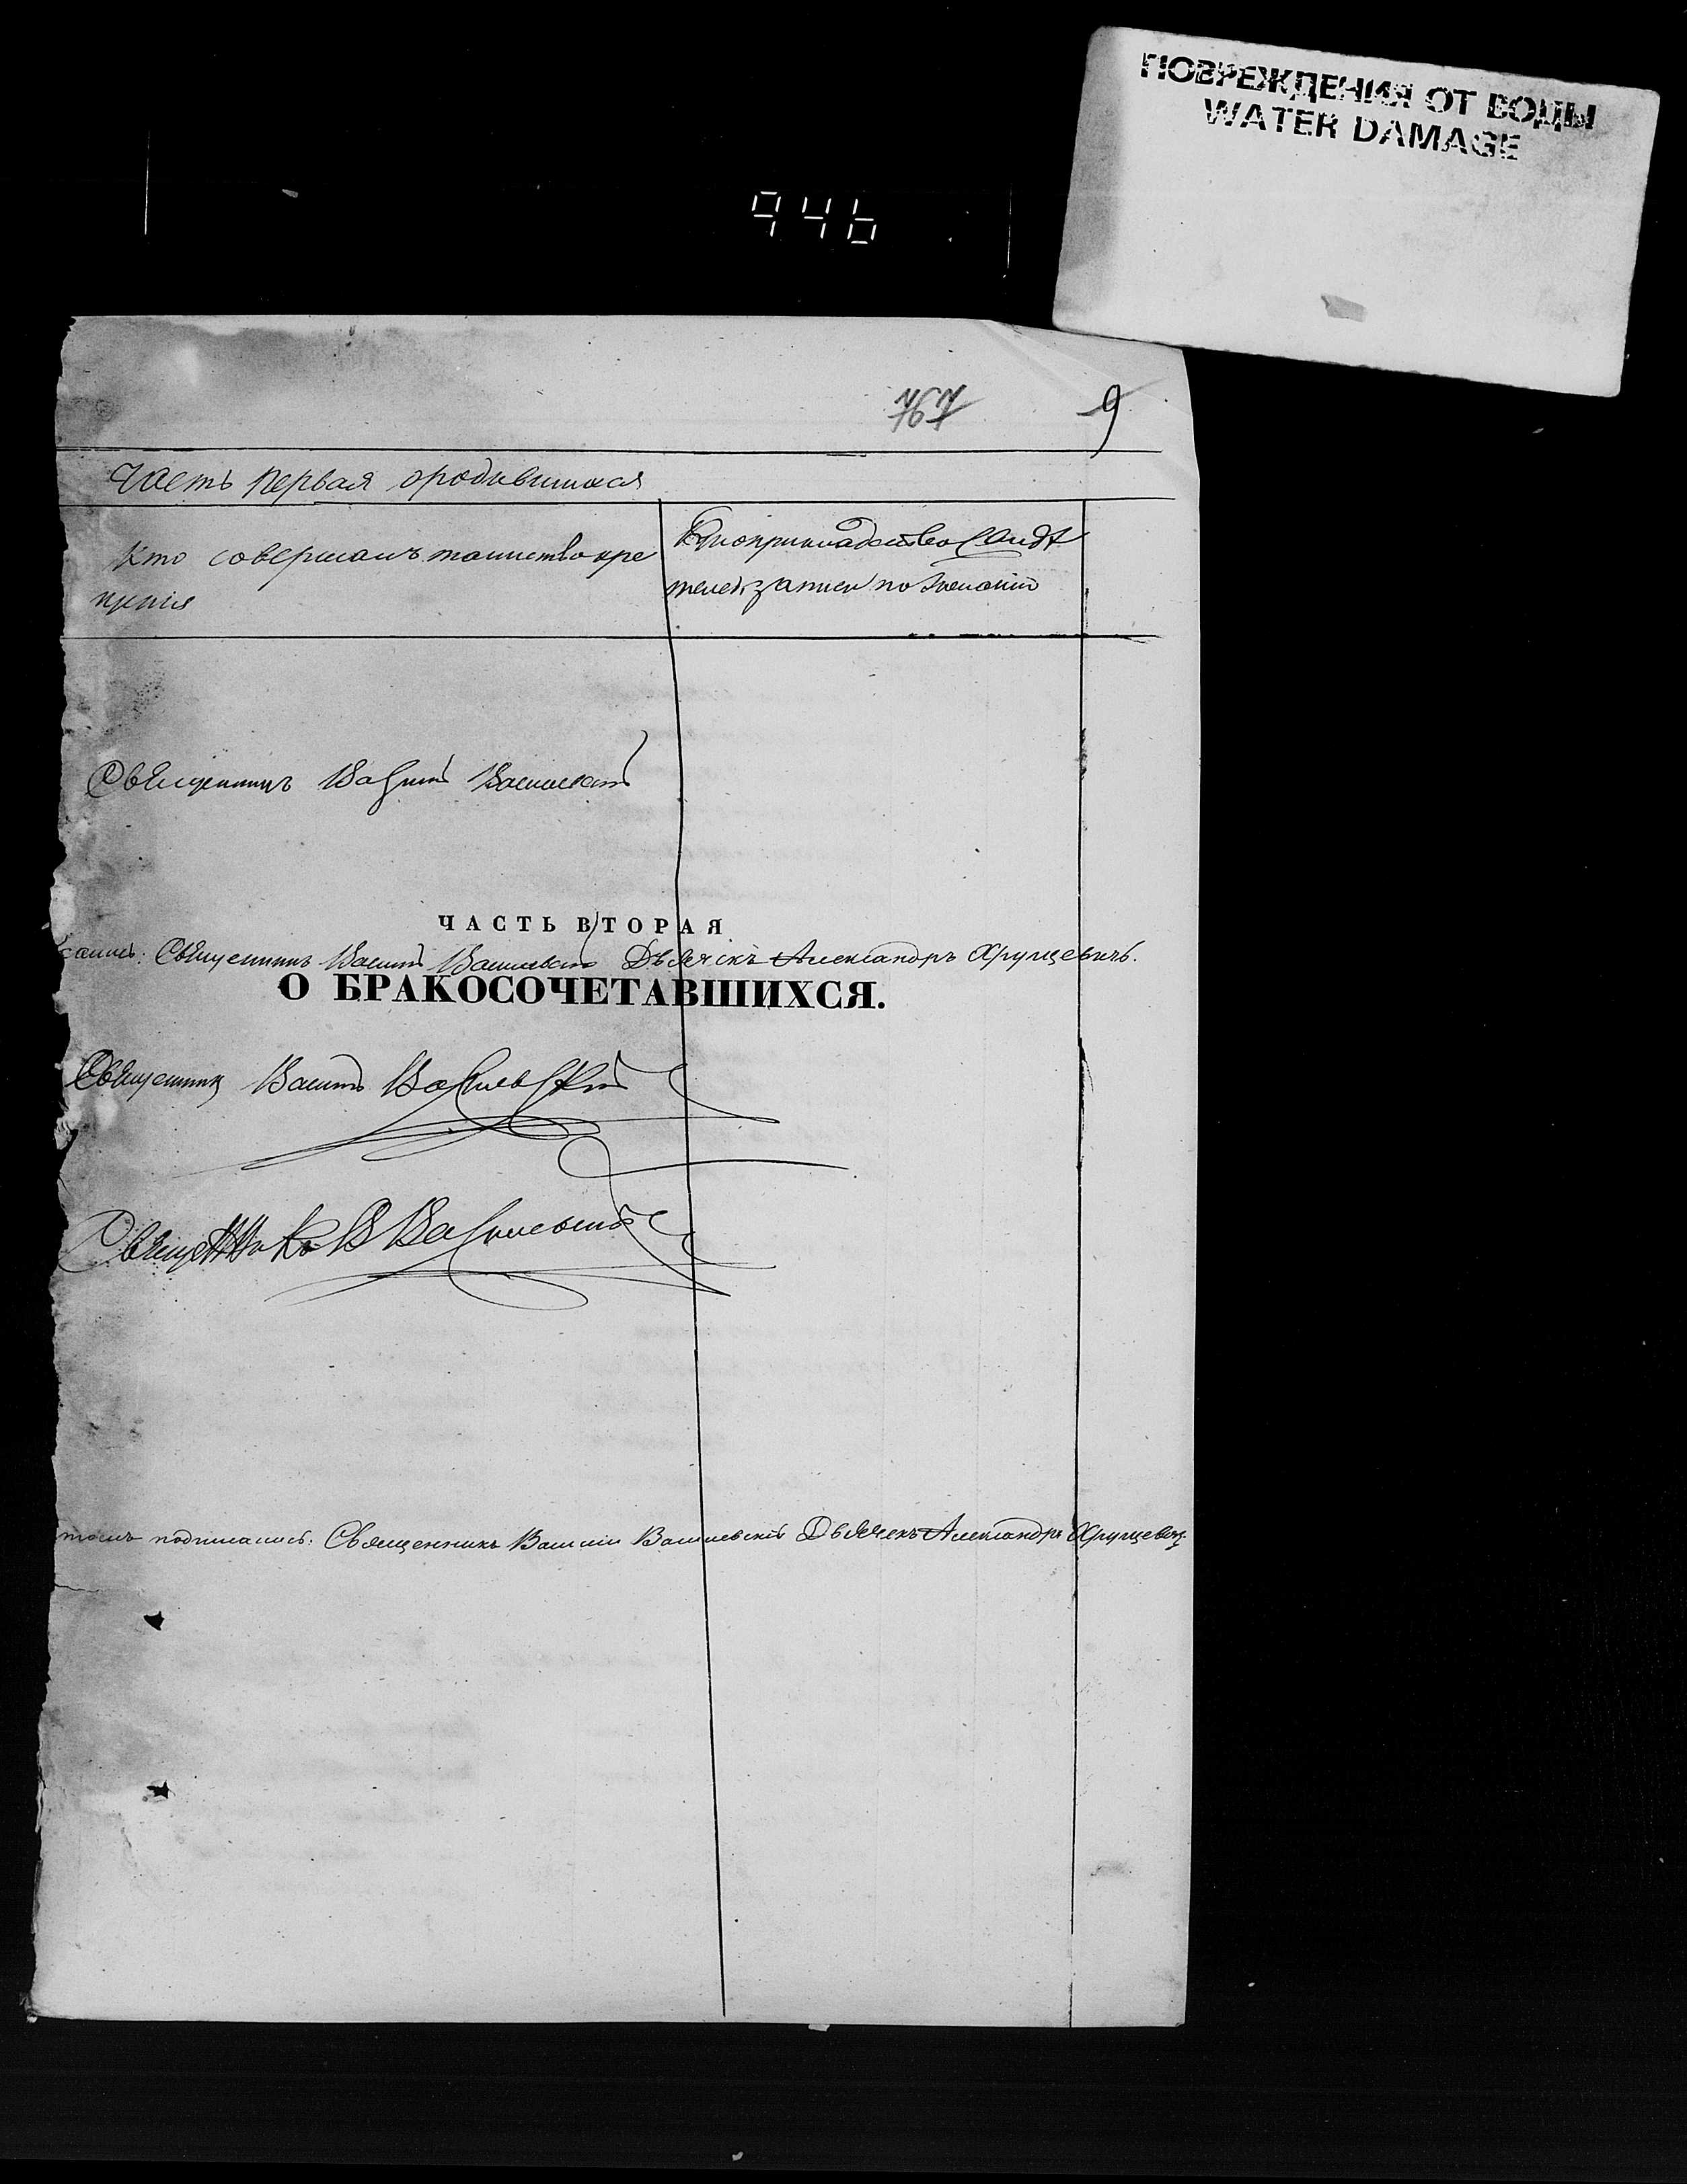 ПОВРЕЖДЕНИЯ ОТ ВОДЫ
WATER DAMAGE
946
767 9
Часть первая ородившихся
Кто совершалъ таинство кре
щенія
Рукоприкладство свидѣ
телей записи по желанію
Священникъ Василій Василевскій
ЧАСТЬ ВТОРАЯ
Священникъ Василій Василевскій Дьячекъ Александръ Хрущевичъ.
О БРАКОСОЧЕТАВШИХСЯ.
Священникъ Василій Васильевскій
Священникъ В Васильевскій
томъ подписались: Священникъ Василій Василевскій Дьячекъ Александръ Хрущевичъ